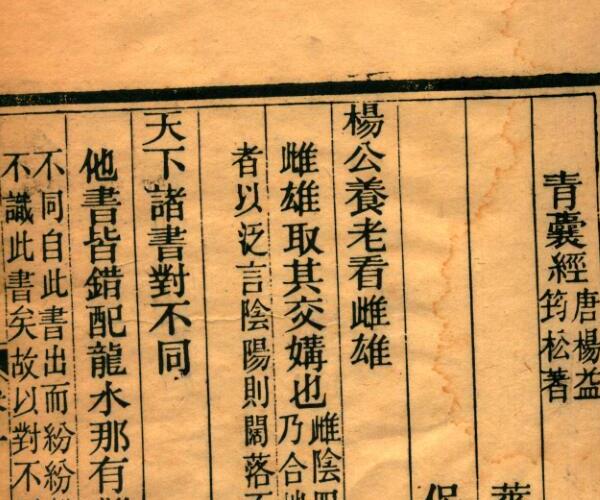 青囊經
唐楊益
筠松著
楊公養老看雌雄
雌雄取其交媾也
雌陰
乃合
者以泛言陰陽則闊落
天下諸書對不同
他書皆錯配龍水那有
不同自此書出而紛紛
不識此書矣故以對不